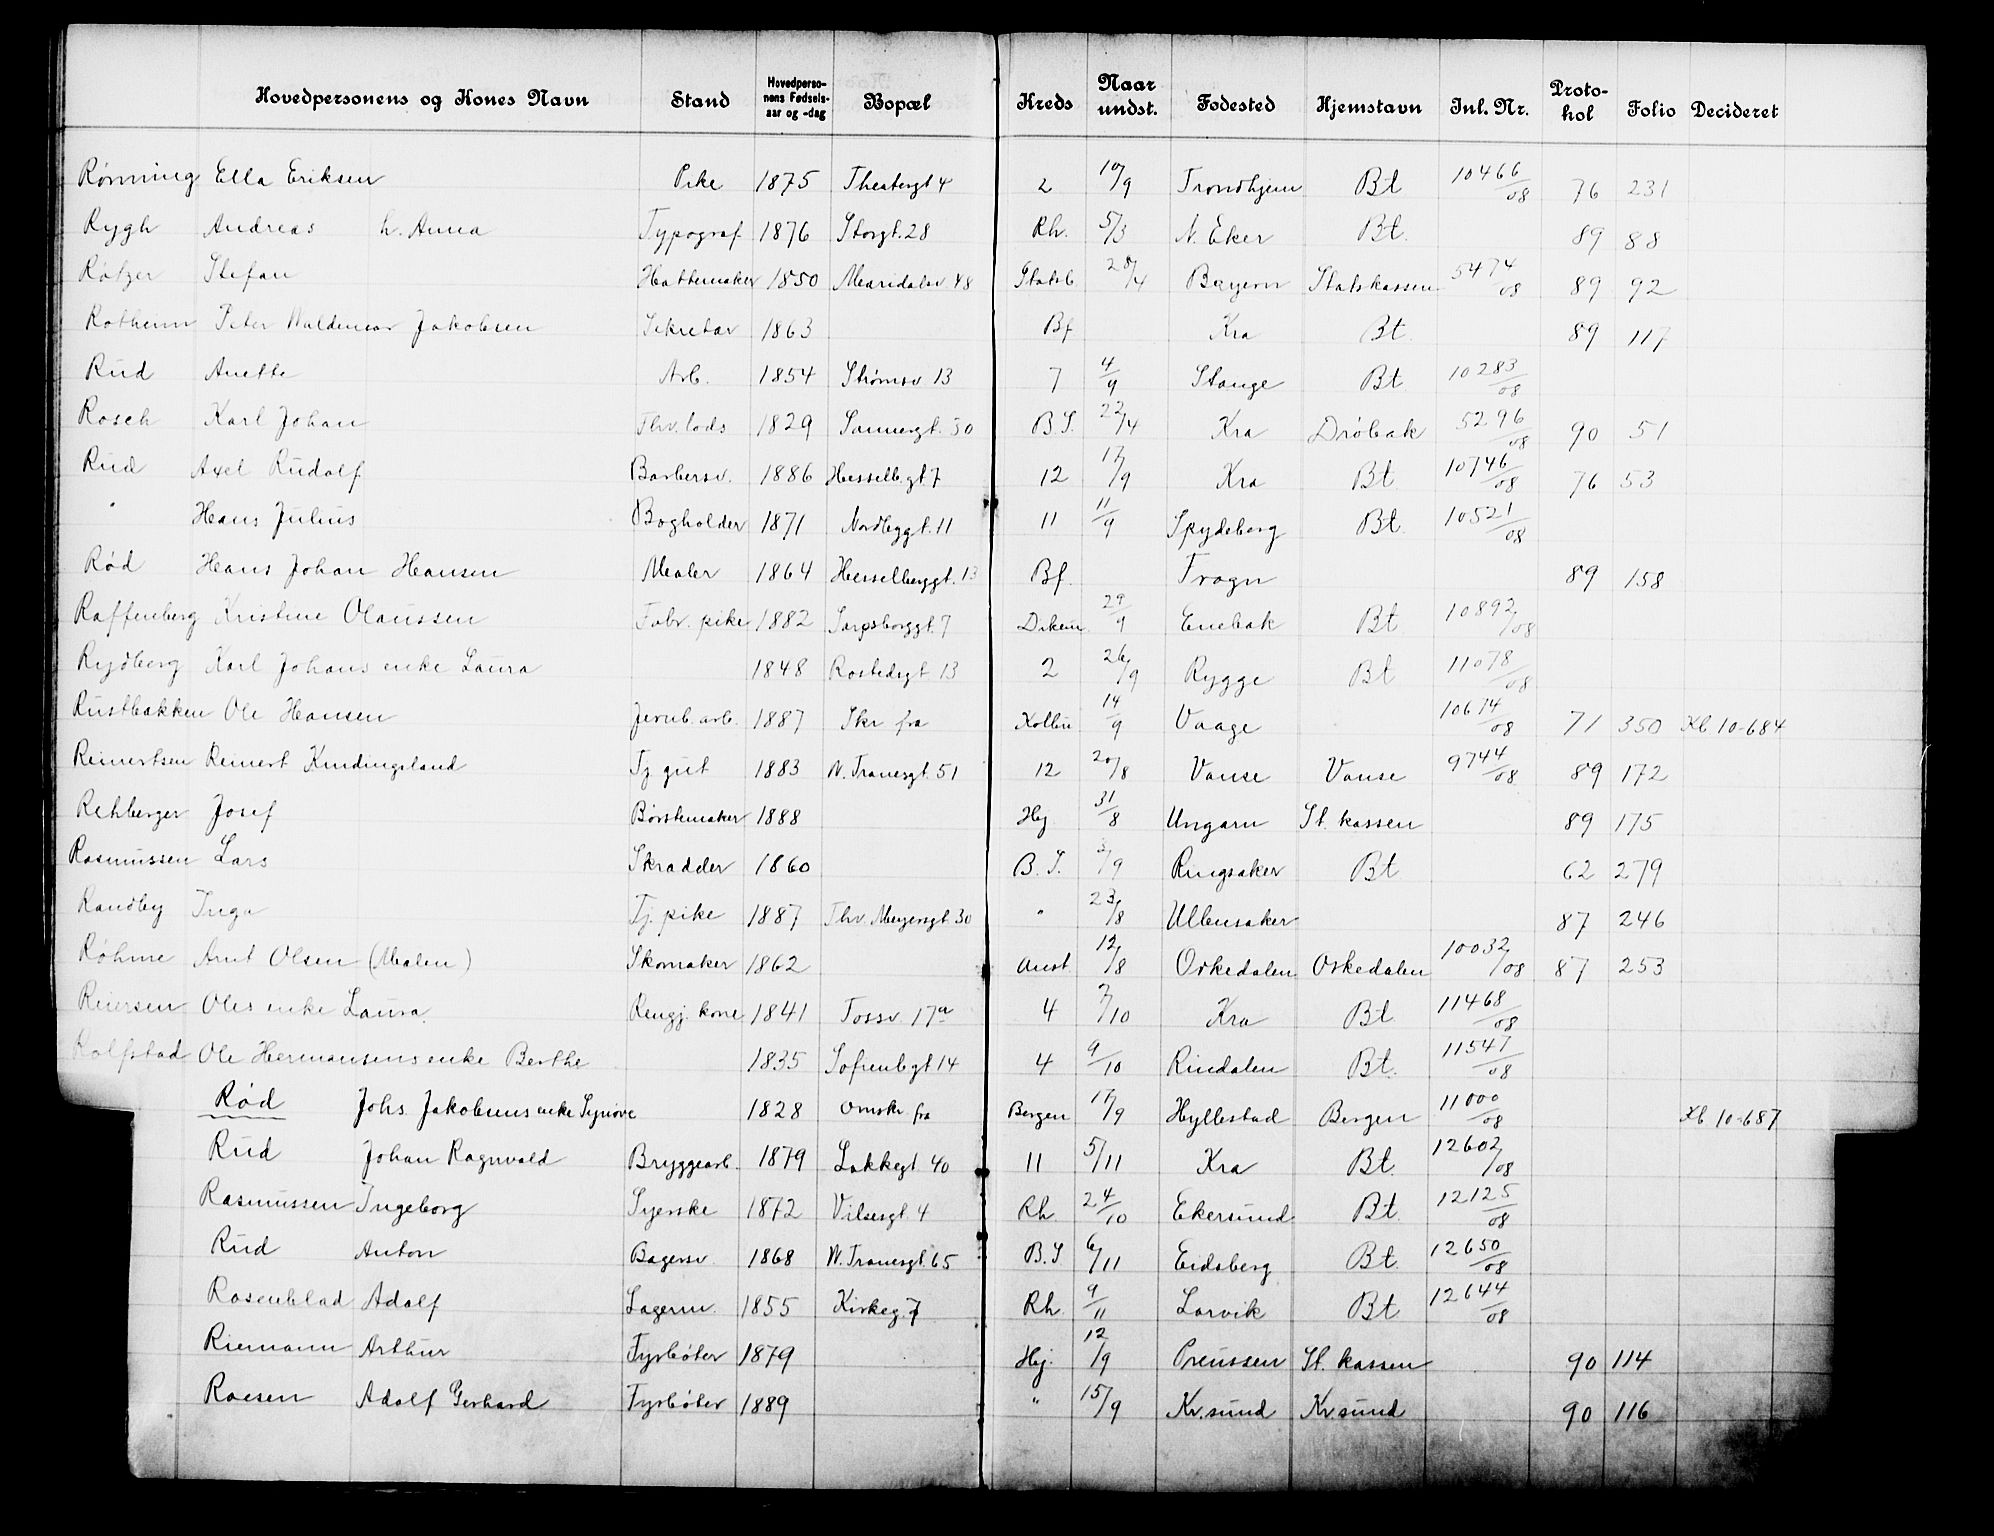 Hovedpersonens og Kones Navn Stand Hovedpersonens Fødselsaar og -dag Bopæl Kreds Naar undst. Fødested Hjemstavn Inl. Nr. Protokol Folio Decideret
Rønning Ella Eriksen Pike 1875 Theatergt 4 2 10/9 Trondhjem Bt 10466/08 76 231
Rygh Andreas h. Anna Typograf 1876 Storgt. 28 Rh. 5/3 N. Eker Bt. 89 88
Rötzer Stefan Hattemaker 1850 Maridalsv 48 Statsb 28/4 Bayern Statskassen 5474/08 89 92
Rotheim Peter Waldemar Jakobsen Sekretær 1863 Bf Kra Bt. 89 117
Rud Anette Arb. 1854 Strømsv 13 7 4/9 Stange Bt 10283/08
Rosch Karl Johan Fhv. lods 1829 Sannergt. 50 B.S. 22/4 Kra Drøbak 5296/08 90 51
Rud Axel Rudolf Barbersv. 1886 Hesselb.gt 7 12 17/9 Kra Bt. 10746/08 76 53
" Hans Julius Bogholder 1871 Nordbyggt. 11 11 11/9 Spydeberg Bt. 10521/08
Rød Hans Johan Hansen Maler 1864 Hesselberggt. 13 Bf. Trogn 89 158
Raffenberg Kristine Olaussen Fabr. pike 1882 Sarpsborggt. 7 Dikem. 29/9 Enebak Bt. 10892/08
Rydberg Karl Johans enke Laura 1848 Rostedsgt 13 2 26/9 Rygge Bt 11078/08
Rustbakken Ole Hansen Jernb. arb. 1887 Skr fra Kolbu 14/9 Vaage 10674/08 71 350 Kb 10-684
Reinertsen Reinert Kundingsland Tj. gut 1883 N. Tranesgt. 51 12 20/8 Vanse Vanse 9744/08 89 172
Rehberger Josef Børstemaker 1888 Hej 31/8 Ungarn St. kassen 89 175
Rasmussen Lars Skradder 1860 B.S. 3/9 Ringsaker Bt 62 279
Randby Inga Tj. pike 1887 Thv. Meyersgt. 30 " 23/8 Ullensaker 87 246
Røhme Arnt Olsen (Malen) Skomaker 1862 Anst 12/8 Orkedalen Orkedalen 10032/08 87 253
Reiersen Oles enke Laura. Rengj. kone 1841 Fossv. 17a 4 7/10 Kra Bt. 11468/08
Rolfstad Ole Hermansens enke Berthe 1835 Sofienbgt 14 4 9/10 Rindalen Bt. 11547/08
Rød Johs. Jakobsens enke Synøve 1828 Omskr. fra Bergen 17/9 Hyllestad Bergen 11000/08 Kb 10-687
Rud Johan Ragnvald Bryggearb. 1879 Lakkegt 40 11 5/11 Kra Bt. 12602/08
Rasmussen Ingeborg Syerske 1872 Vibesgt. 4 Rh. 24/10 Ekersund Bt. 12125/08
Rud Anton Bagersv. 1868 N. Tranesgt. 65 B.S 6/11 Eidsberg Bt. 12650/08
Rosenblad Adolf Lagerm. 1855 Kirkeg. 7 Rh. 9/11 Larvik Bt 12644/08
Riemann Arthur Fyrbøter 1879 Hej. 12/9 Preussen St. kassen 90 114
Roesen Adolf Gerhard Fyrbøter 1889 " 15/9 Kr.sund Kr.sund 90 116